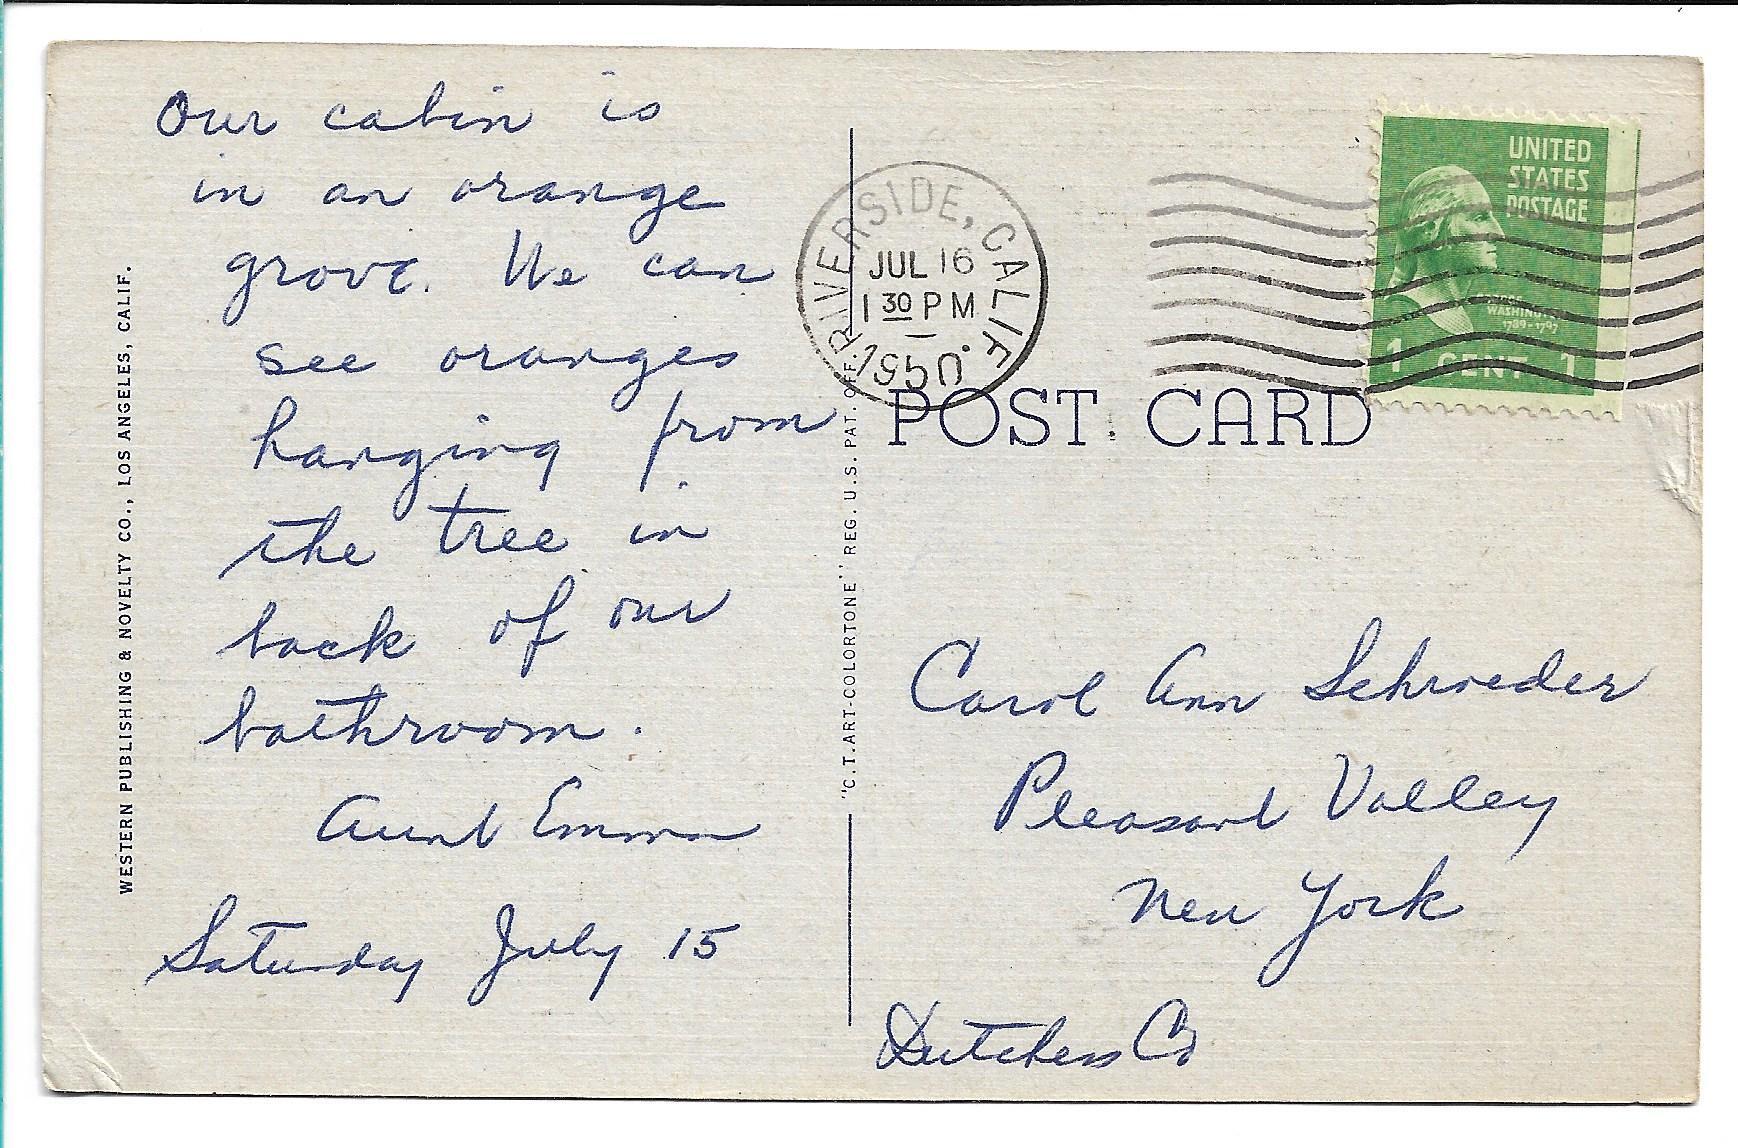 Our cabin is
in an orange
grove. We can
see oranges
hanging from
the tree in
back of our
bathroom.
Aunt Emma
Saturday July 15
WESTERN PUBLISHING & NOVELTY CO., LOS ANGELES, CALIF.
"C.T. ART-COLORTONE" REG. U.S. PAT. OFF.
RIVERSIDE, CALIF.
JUL 16
1 30 PM
1950
UNITED
STATES
POSTAGE
WASHINGTON
1789-1797
1 CENT 1
POST CARD
Carol Ann Schroeder
Pleasant Valley
New York
Dutchess Co